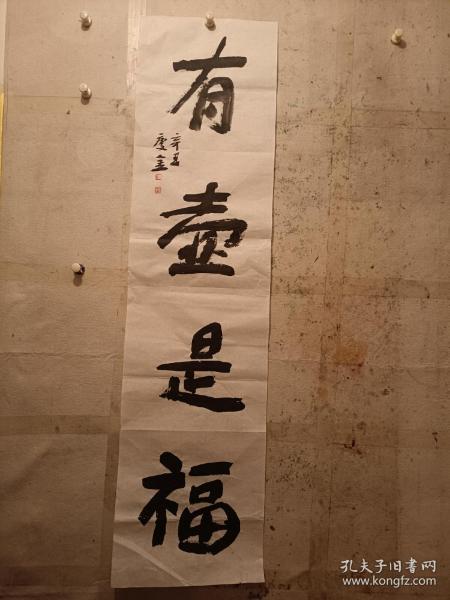 有壶是福
辛丑
庆金
孔夫子旧书网
www.kongfz.com